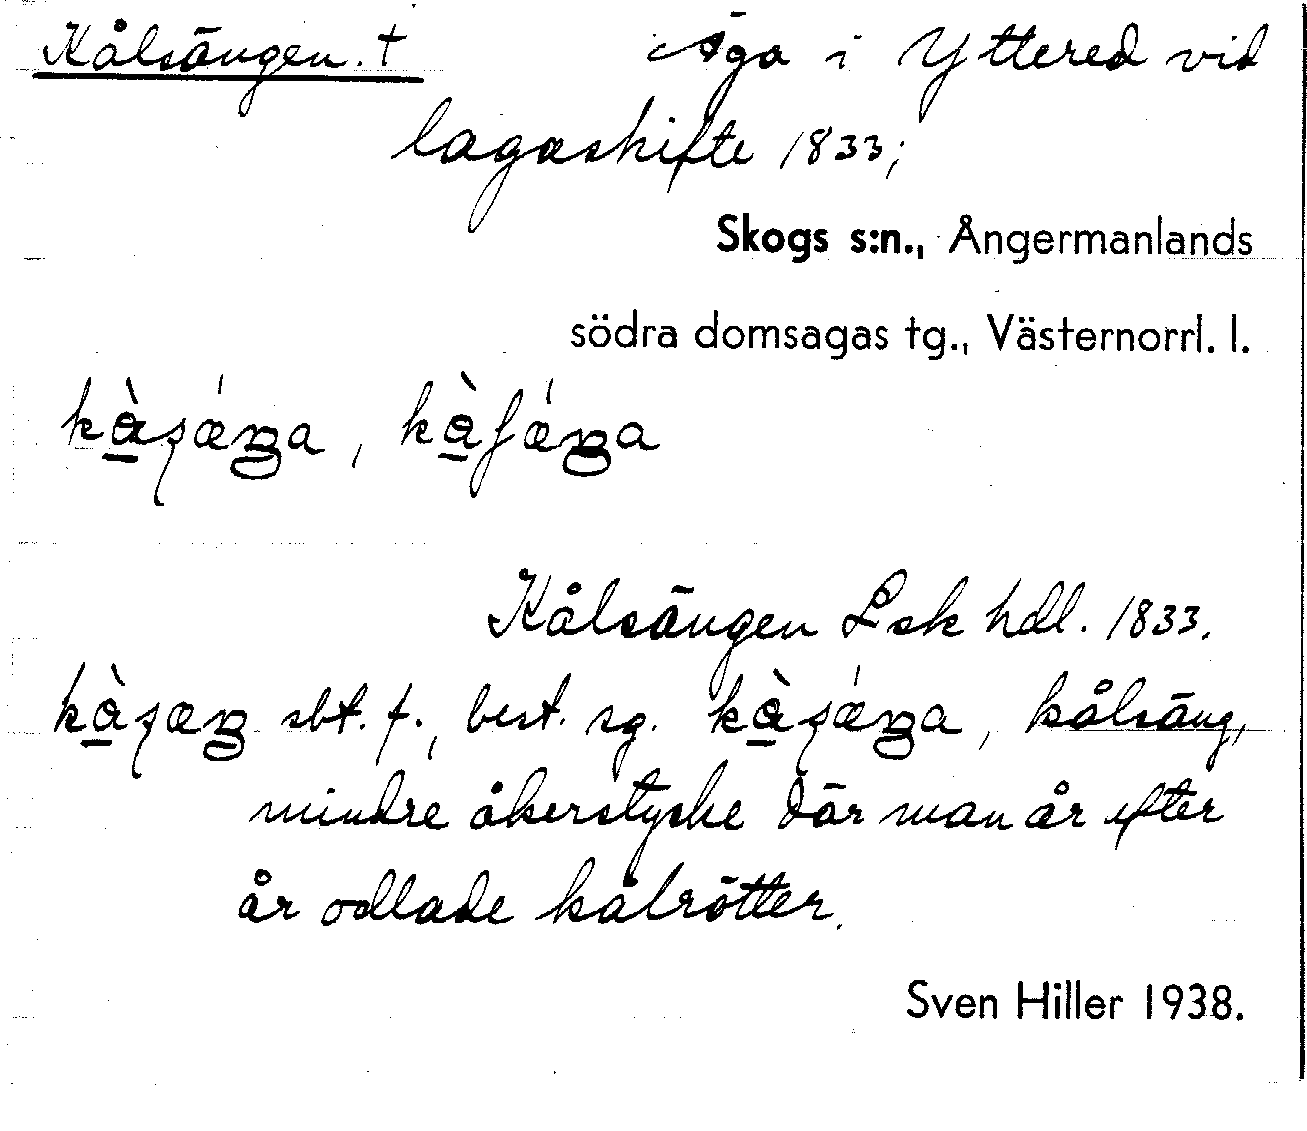 Kålsängen. †    Äga i Yttered vid
lagaskifte 1833;
Skogs s:n., Ångermanlands
södra domsagas tg., Västernorrl. l.
Kålsängen Lsk hdl. 1833.
sbt. f., best. sg. kålsäng,
mindre åkerstycke där man år efter
år odlade kålrötter.
Sven Hiller 1938.